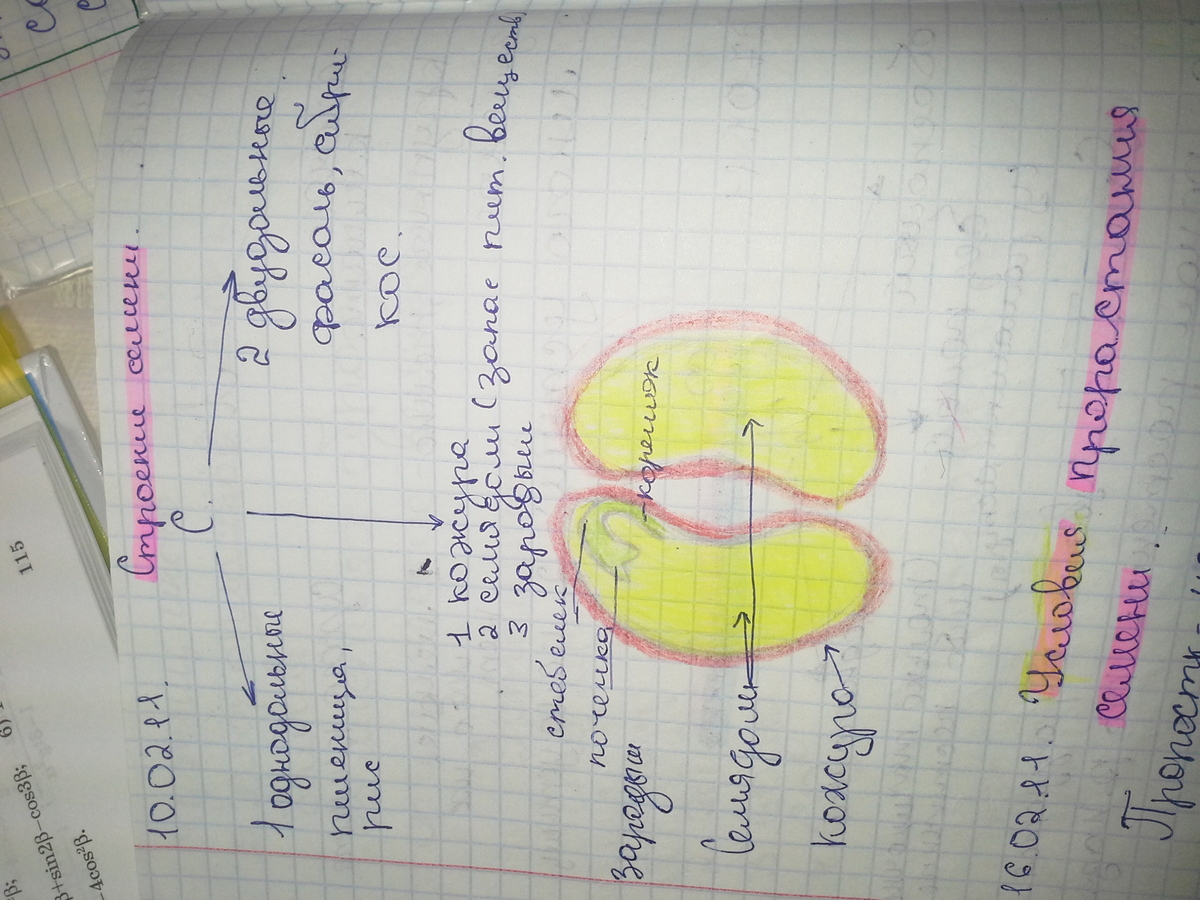 10.02.11. Строение семени.
С
1 однодольные
пшеница,
рис
2 двудольные
фасоль, абри-
кос.
1 кожура
2 семядоли (запас пит. веществ)
3 зародыш
стебелек
почечка
корешок
Зародыш
Семядоли
Кожура
16.02.11. Условия прорастания
семени.
115
6)
β+sin2β−cos3β;
−4cos²β.